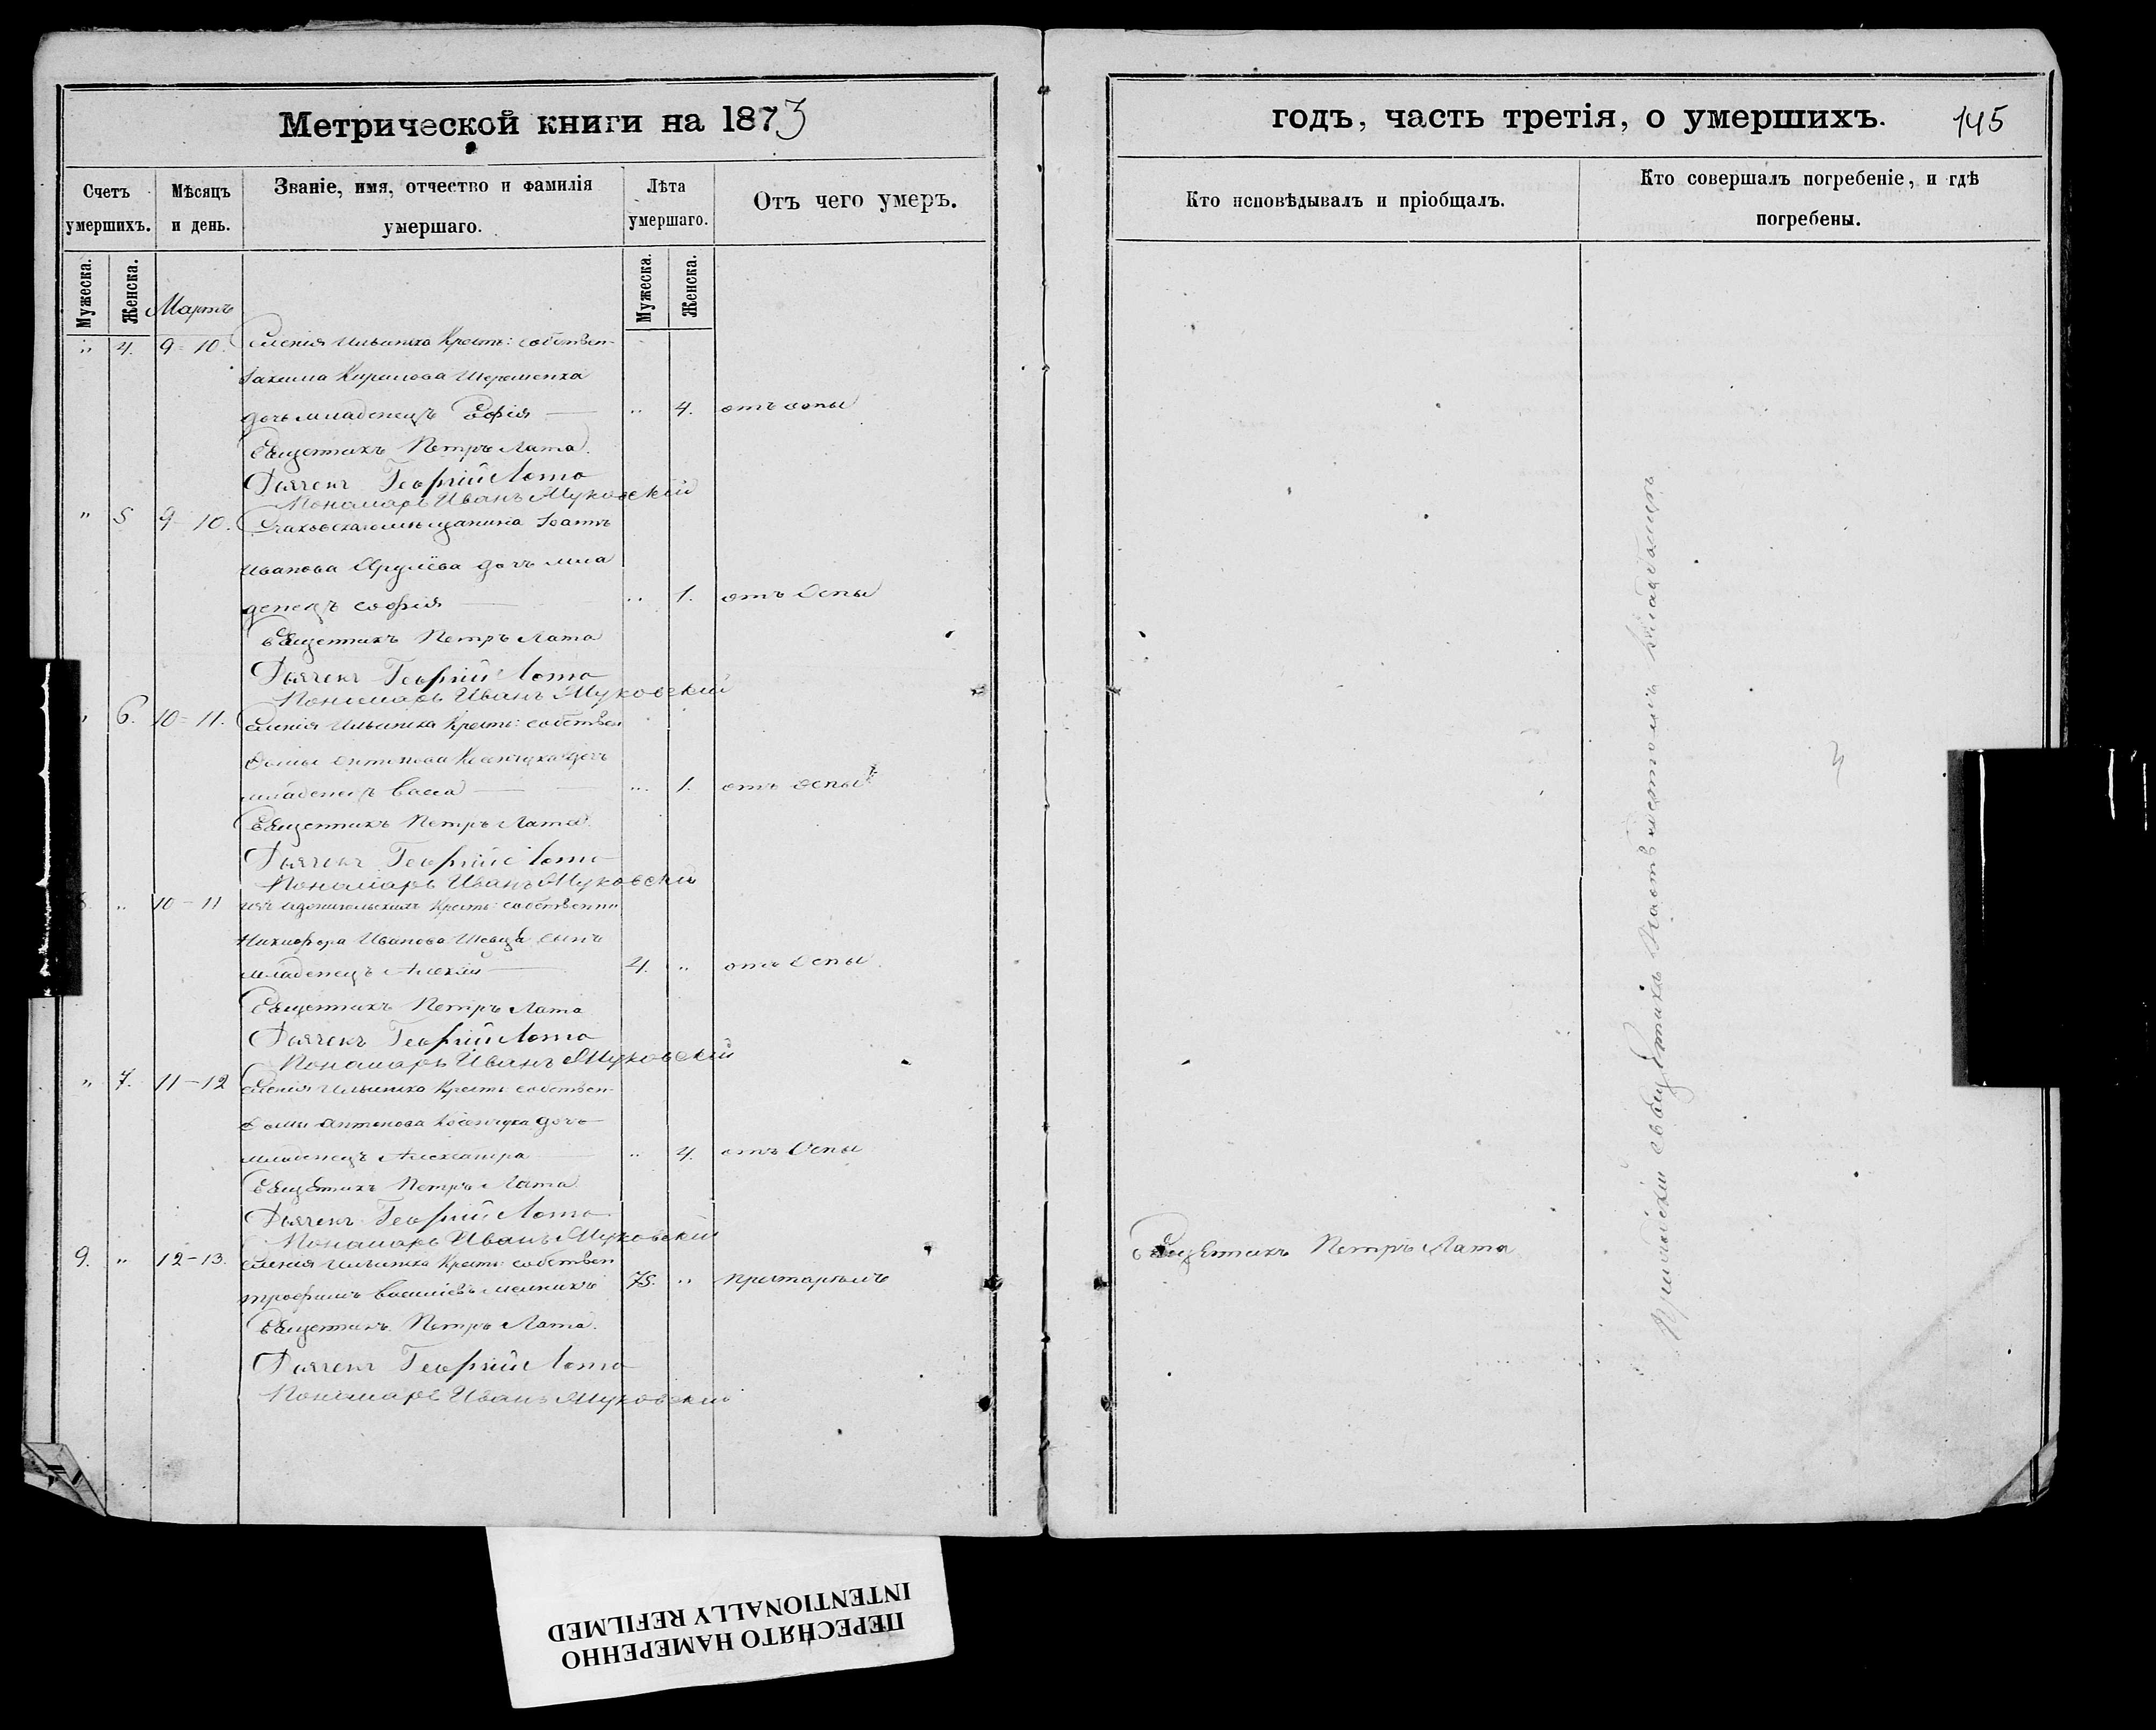 Метрической книги на 1873
годъ, часть третія, о умершихъ. 145
Счетъ умершихъ.
Мѣсяцъ и день.
Званіе, имя, отчество и фамилія умершаго.
Лѣта умершаго.
Отъ чего умеръ.
Кто исповѣдывалъ и пріобщалъ.
Кто совершалъ погребеніе, и гдѣ погребены.
Мужеска.
Женска.
Мартъ
Мужеска.
Женска.
" 4. 9-10. Селенія Ильинка Крест: собствен-
Кирилова
дочь младенецъ Софія " 4. отъ оспы
Священникъ Петръ Лата.
Дьячекъ Георгій Лата
Пономарь Иванъ Жуковскій
" 5 9-10. Іоанна
Иванова дочь мла
денецъ Софія " 1. отъ Оспы
Священникъ Петръ Лата
Дьячекъ Георгій Лата
Пономарь Иванъ Жуковскій
" 6. 10-11. Селенія Ильинка Крест: собствен
Фомы Антонова дочь
младенецъ Васса " 1. отъ оспы
Священникъ Петръ Лата.
Дьячекъ Георгій Лата
Пономарь Иванъ Жуковскій
" 10-11 Крест: собственни
Никифора Иванова Шевца сынъ
младенецъ Алексій 4. " отъ Оспы.
Священникъ Петръ Лата
Дьячекъ Георгій Лата
Пономарь Иванъ Жуковскій
" 7. 11-12 Селенія Ильинка Крест: собствен-
Фомы Антонова дочь
младенецъ Александра " 4. отъ Оспы
Священникъ Петръ Лата
Дьячекъ Георгій Лата
Пономарь Иванъ Жуковскій
9. " 12-13. Селенія Ильинка Крест: собствен
Трофимъ Василіевъ Мельникъ 75. " престарѣлъ
Священникъ Петръ Лата.
Дьячекъ Георгій Лата
Пономарь Иванъ Жуковскій
Священникъ Петръ Лата
священникъ кладбищѣ
ПЕРЕСНЯТО НАМЕРЕННО
INTENTIONALLY REFILMED